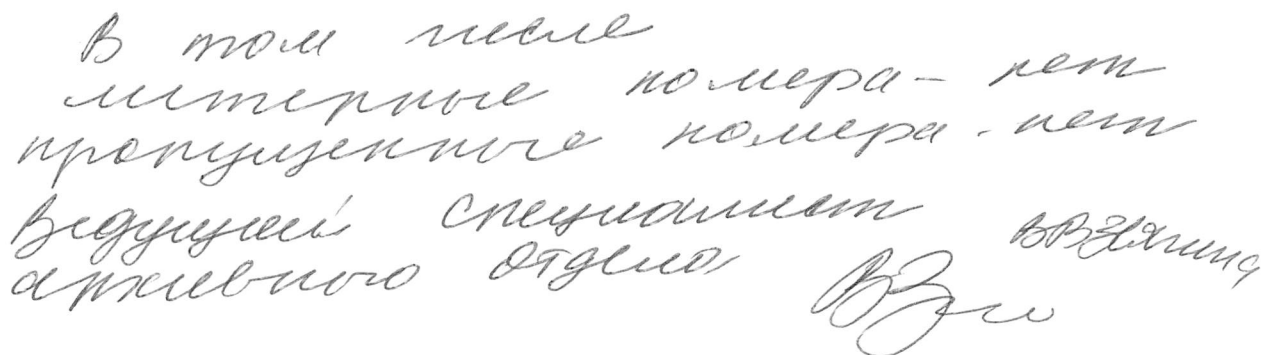 В том числе
литерные номера – нет
пропущенные номера - нет
Ведущий специалист
архивного отдела